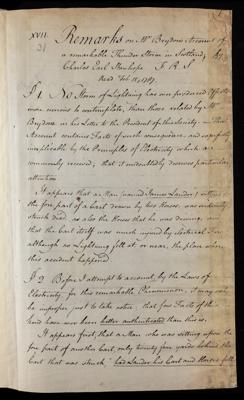 XVII.
31
Remarks on Mr Brydone's Account of
a remarkable Thunder Storm in Scotland; By
Charles Earl Stanhope F. R. S
Read Feb. 15, 1787.
§ 1 No Storm of Lightning has ever produced Effects
more curious to contemplate, than those related by Mr
Brydone in his Letter to the President of this Society. This
Account contains Facts of such consequence, and so perfectly
inexplicable by the Principles of Electricity which are
commonly received, that it undoubtedly deserves particular
attention
It appears that a Man (named James Lauder) sitting on
the fore part of a Cart drawn by two Horses, was suddenly
struck dead as also the Horses that he was driving, and
that the Cart itself was much injured by electrical Fire
although no Lightning fell at or near, the place where
this accident happened
§ 2 Before I attempt to account, by the Laws of
Electricity, for this remarkable Phænomenon, it may not
be improper just to take notice, that few Facts of this
kind have ever been better authenticated than this is.
It appears first, that a Man who was sitting upon the
fore part of another Cart, only twenty four yards behind the
Cart that was struck "had Lauder his Cart and Horses full